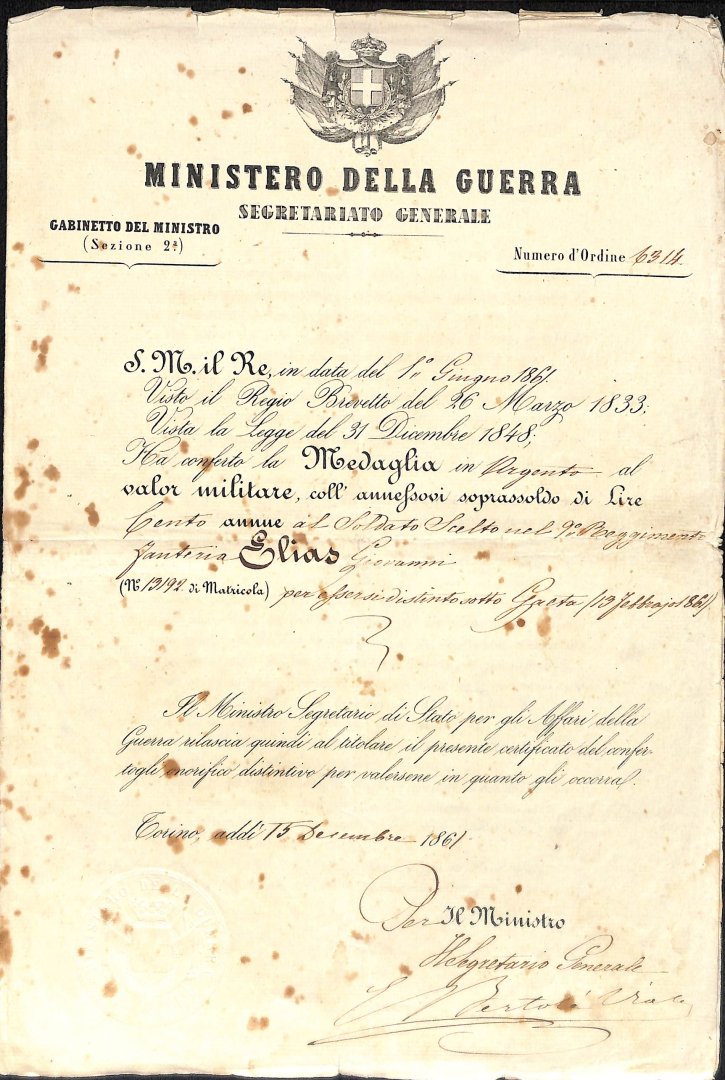 MINISTERO DELLA GUERRA
SEGRETARIATO GENERALE
GABINETTO DEL MINISTRO
(Sezione 2ª)
Numero d'Ordine 6314
S. M. il Re, in data del 1º Giugno 1861
Visto il Regio Brevetto del 26 Marzo 1833;
Vista la Legge del 31 Dicembre 1848;
Ha conferto la Medaglia in Argento al
valor militare, coll' annessovi soprassoldo di Lire
Cento annue al Soldato Scelto nel 9º Reggimento
fanteria Elias Giovanni
(Nº 13192 di Matricola) per essersi distinto sotto Gaeta (13 febbrajo 1861)
Il Ministro Segretario di Stato per gli Affari della
Guerra rilascia quindi al titolare il presente certificato del confer-
togli onorifico distintivo per valersene in quanto gli occorra.
Torino, addì 15 Decembre 1861
Per Il Ministro
Il Segretario Generale
Bertolè Viale